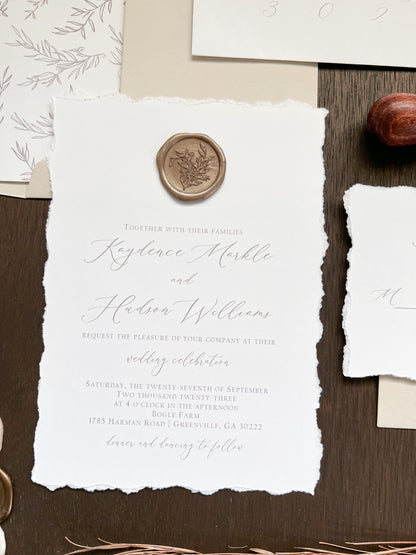 3 0 2
TOGETHER WITH THEIR FAMILIES
Kaydence Markle
and
Hudson Williams
REQUEST THE PLEASURE OF YOUR COMPANY AT THEIR
wedding celebration
SATURDAY, THE TWENTY-SEVENTH OF SEPTEMBER
TWO THOUSAND TWENTY-THREE
AT 4 O'CLOCK IN THE AFTERNOON
BOGLE FARM
1785 HARMAN ROAD | GREENVILLE, GA 30222
dinner and dancing to follow
M